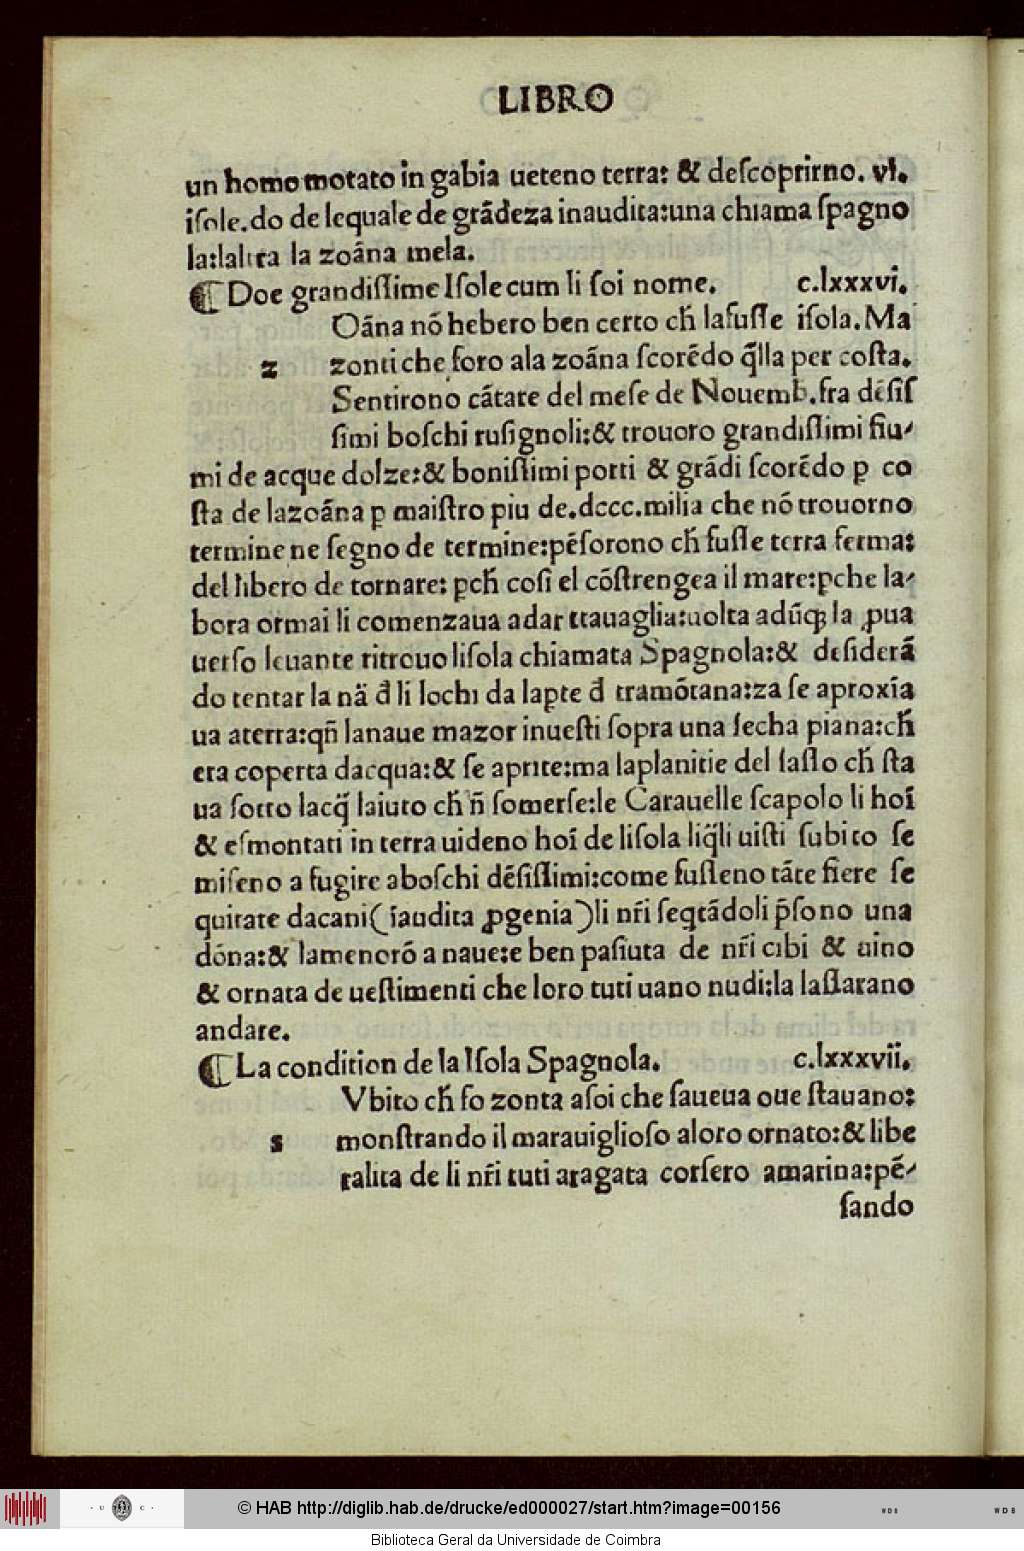 LIBRO
un homo motato in gabia ueteno terra: & deſcoprirno. vl.
iſole. do de lequale de grãdeza inaudita: una chiama ſpagno
la: laltra la zoãna mela.
¶ Doe grandiſſime Iſole cum li ſoi nome. c.lxxxvi.
Oãna nõ hebero ben certo ch̃ lafuſſe iſola. Ma
z zonti che foro ala zoãna ſcorẽdo q̃lla per coſta.
Sentirono cãtare del meſe de Nouemb. fra dẽſiſ
ſimi boſchi ruſignoli: & trouoro grandiſſimi fiu-
mi de acque dolze: & boniſſimi porti & grãdi ſcorẽdo ꝑ co
ſta de lazoãna ꝑ maiſtro piu de. dccc. milia che nõ trouorno
termine ne ſegno de termine: pẽſorono ch̃ fuſſe terra ferma:
del libero de tornare: ꝑch̃ coſi el cõſtrengea il mare: ꝑche la-
bora ormai li comenzaua a dar trauaglia: uolta adũq̃ la ꝓua
uerſo leuante ritrouo liſola chiamata Spagnola: & deſiderã
do tentar la nã d̃ li lochi da laꝑte d̃ tramõtana: za ſe aproxĩa
ua aterra: qñ lanaue mazor inueſti ſopra una ſecha piana: ch̃
era coperta dacqua: & ſe aprite: ma laplanitie del ſaſſo ch̃ ſta
ua ſotto lacq̃ laiuto ch̃ ñ ſomerſe: le Carauelle ſcapolo li hoĩ
& eſmontati in terra uideno hoĩ de liſola liq̃li uiſti ſubito ſe
miſeno a fugire aboſchi dẽſiſſimi: come fuſſeno tãte fiere ſe
quitate dacani (ĩaudita ꝓgenia) li nr̃i ſeqtãdoli p̃ſono una
dõna: & lamenorõ a naue: e ben paſiuta de nr̃i cibi & uino
& ornata de ueſtimenti che loro tuti uano nudi: la laſſarano
andare.
¶ La condition de la Iſola Spagnola. c.lxxxvii.
Vbito ch̃ fo zonta aſoi che ſaueua oue ſtauano:
s monſtrando il marauiglioſo aloro ornato: & libe
ralita de li nr̃i tuti aragata corſero amarina: pẽ-
ſando
© HAB http://diglib.hab.de/drucke/ed000027/start.htm?image=00156
· U C ·
WDB
WDB
Biblioteca Geral da Universidade de Coimbra